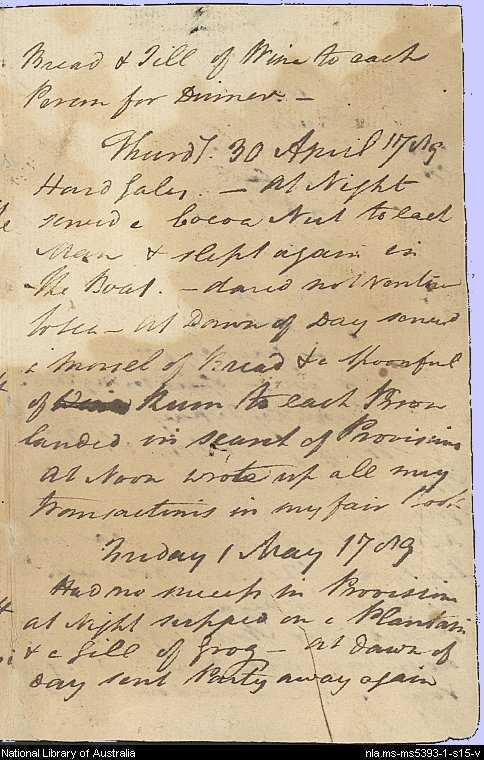 Bread & Jill of Wine to each
Person for Dinner. —
Thursd. 30 April 1789
Hard Gales. — at Night
served a Cocoa Nut to each
Man & slept again in
the Boat. — dared not venture
to sea — at Dawn of Day served
a morsel of Bread & a Spoonful
of Rum to each Pson
landed in search of Provisions
at Noon wrote up all my
transactions in my fair Book
Friday 1 May 1789
Had no success in Provision
at Night supped on a Plantain
& a Gill of Grog — at dawn of
day sent Party away again
National Library of Australia
nla.ms-ms5393-1-s15-v